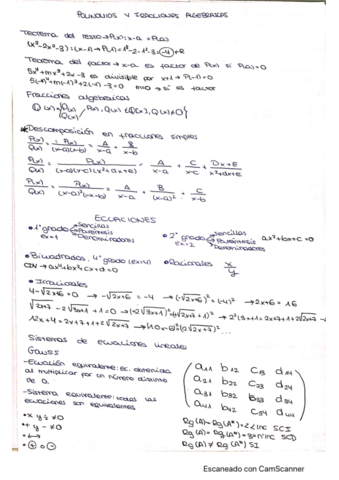 POLINOMIOS Y FRACCIONES ALGEBRAICAS
Teorema del resto → P(x): x-a = P(a)
(x²-2x²-3):(x-1) → P(1)=1²-2·1²-3=-4 → R
Teorema del factor → x-a es factor de P(x) si P(a)=0
5x⁴+mx³+2x-3 es divisible por x+1 → P(-1)=0
5(-1)⁴+m(-1)³+2(-1)-3=0 m=0 → si es factor
Fracciones algebraicas
*Descomposición en fracciones simples
P(x)/Q(x) = P(x)/(x-a)(x-b) = A/x-a + B/x-b
P(x)/Q(x) = P(x)/(x-a)(x-c)(x²+dx+e) = A/x-a + C/x-c + Dx+E/x²+dx+e
P(x)/Q(x) = P(x)/(x-a)²(x-b) = A/x-a + B/(x-a)² + C/x-b
ECUACIONES
•1º grado Sencillas Paréntesis Denominadores
ex=1
•2º grado sencillas Paréntesis Denominadores ax²+bx+c=0
ex=2
•Bicuadradas, 4º grado (ex=4) •Racionales x/y
•Irracionales
4-√2x+6=0 → -√2x+6=-4 → (-√2x+6)²=(-4)² → 2x+6=16
Sistemas de ecuaciones lineales
Gauss
-Ecuación equivalente: ec. obtenida al multiplicar por un número distinto de 0.
-Sistema equivalente: todas las ecuaciones son equivalentes
a11 b12 c13 d14
a21 b22 c23 d24
a31 b32 c33 d34
a41 b42 c34 d44
•x y ÷ ≠0
•+ y - ≠0
•+ o -
Rg(A)=Rg(A*)=2<inc SCI
Rg(A)=Rg(A*)=3=inc SCD
Rg(A)≠Rg(A*) SI
Escaneado con CamScanner